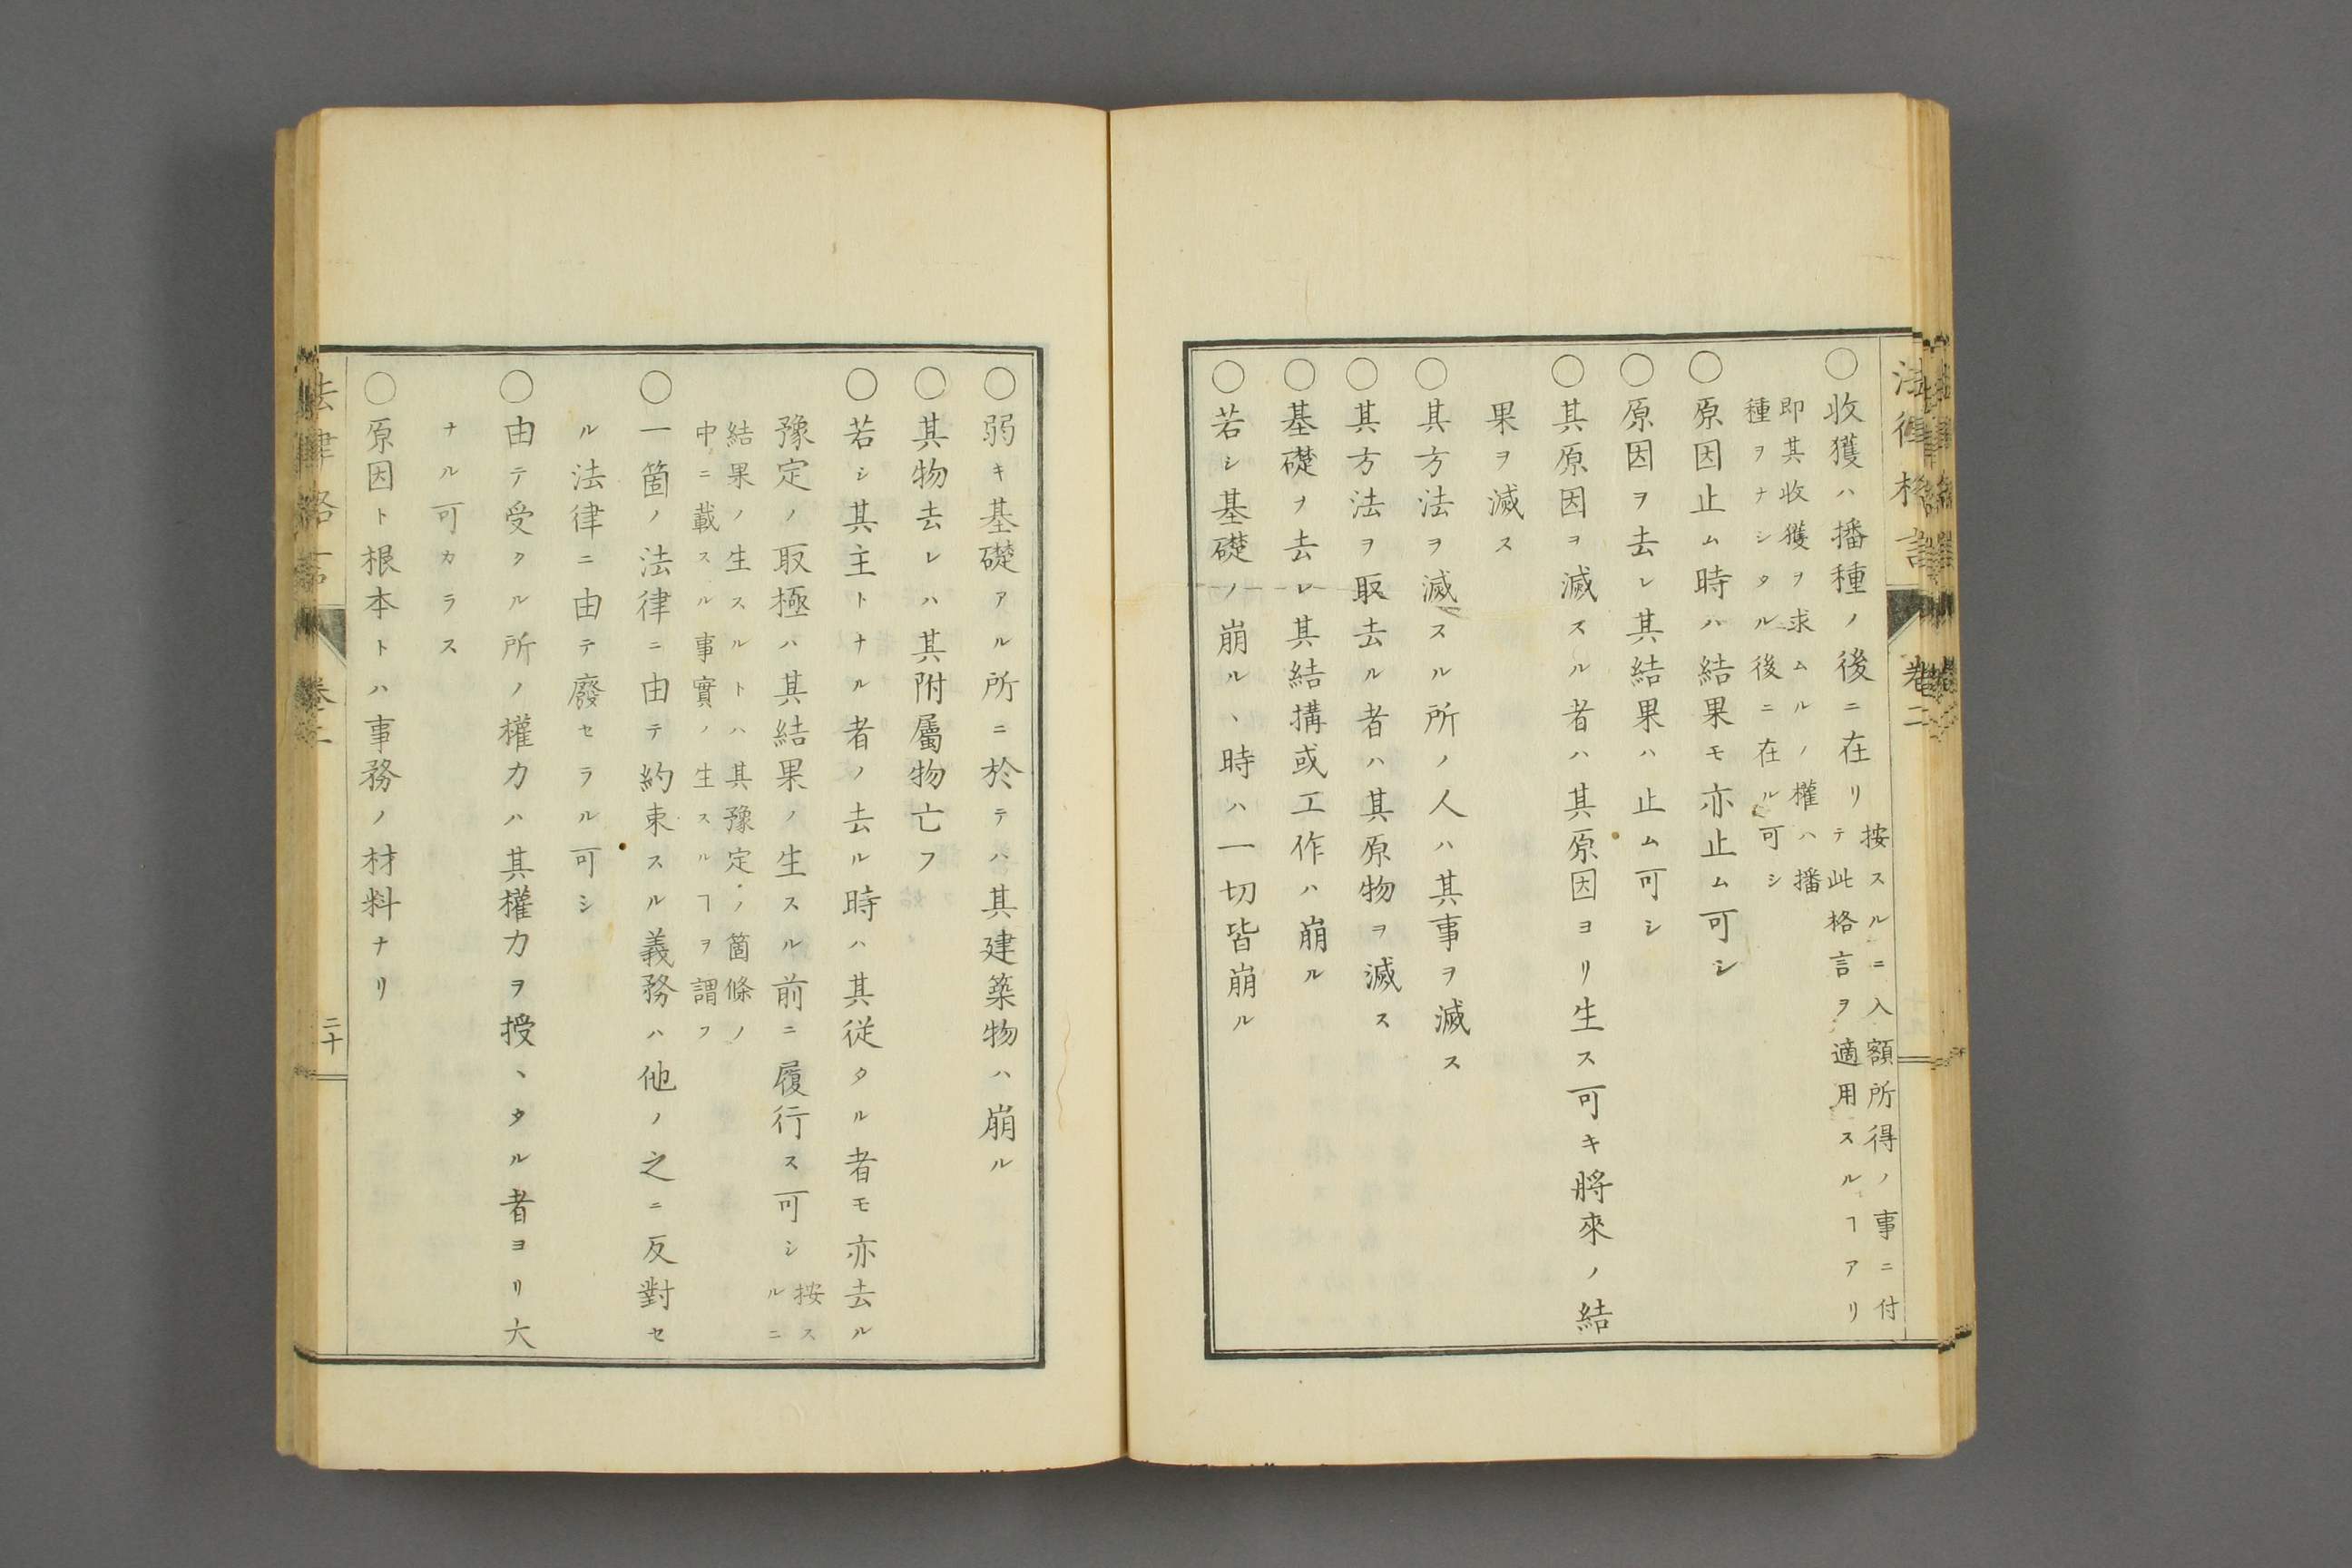 法律格言
卷二
○收獲ハ播種ノ後ニ在リ
按スルニ入額所得ノ事ニ付
テ此格言ヲ適用スルヿアリ
即其收獲ヲ求ムルノ權ハ播
種ヲナシタル後ニ在ル可シ
○原因止ム時ハ結果モ亦止ム可シ
○原因ヲ去レ其結果ハ止ム可シ
○其原因ヲ滅スル者ハ其原因ヨリ生ス可キ將來ノ結
果ヲ滅ス
○其方法ヲ滅スル所ノ人ハ其事ヲ滅ス
○其方法ヲ取去ル者ハ其原物ヲ滅ス
○基礎ヲ去レ其結搆或工作ハ崩ル
○若シ基礎ノ崩ル丶時ハ一切皆崩ル
○弱キ基礎アル所ニ於テハ其建築物ハ崩ル
○其物去レハ其附屬物亡フ
○若シ其主トナル者ノ去ル時ハ其従タル者モ亦去ル
豫定ノ取極ハ其結果ノ生スル前ニ履行ス可シ
按ス
ルニ
結果ノ生スルトハ其豫定ノ箇條ノ
中ニ載スル事實ノ生スルヿヲ謂フ
○一箇ノ法律ニ由テ約束スル義務ハ他ノ之ニ反對セ
ル法律ニ由テ廢セラル可シ
○由テ受タル所ノ權力ハ其權力ヲ授丶タル者ヨリ大
ナル可カラス
○原因ト根本トハ事務ノ材料ナリ
法律格言
卷二
二十